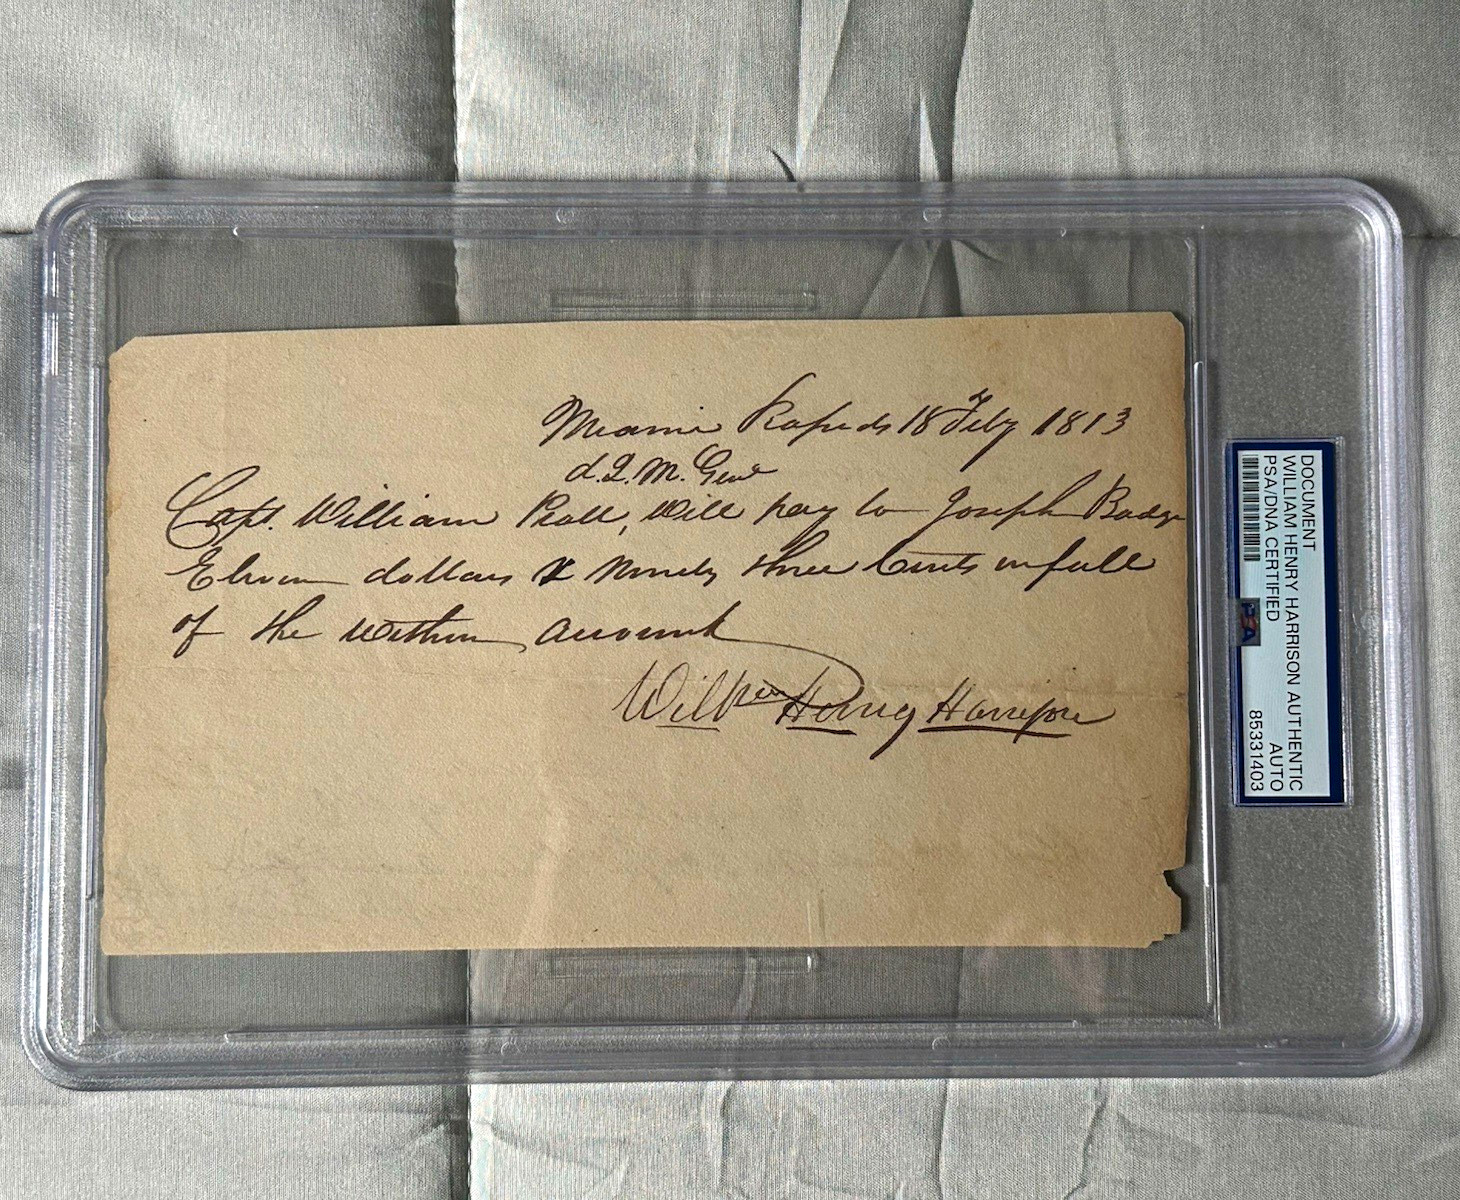 Miami Rapids 18 Feby 1813
d.Q.M. Genl
Capt. William Piatt, Will pay to Joseph Badger
Eleven dollars & Ninety three Cents in full
of the Within account
Willm Henry Harrison
DOCUMENT
WILLIAM HENRY HARRISON AUTHENTIC
AUTO
PSA/DNA CERTIFIED
85331403
PSA